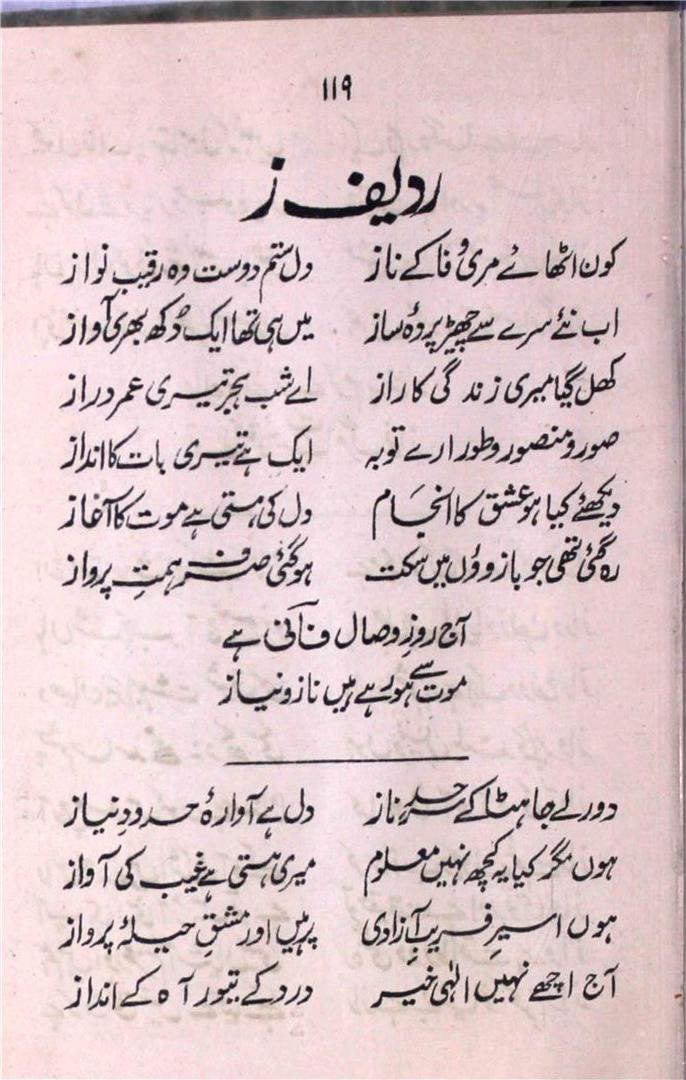 ۱۱۹
ردیف ز
کون اٹھائے مری وفا کے ناز دل ستم دوست وہ رقیب نواز
اب نئے سرے سے چھیڑ پردہ ساز میں ہی تھا ایک دُکھ بھری آواز
کھل گیا میری زندگی کا راز اے شب ہجر تیری عمر دراز
صور و منصور و طور ارے توبہ ایک ہے تیری بات کا انداز
دیکھئے کیا ہو عشق کا انجام دل کی ہستی ہے موت کا آغاز
رہ گئی تھی جو بازوؤں میں سکت ہو گئی صرف ہمتِ پرواز
آج روزِ وصال فانی ہے
موت سے ہو رہے ہیں ناز و نیاز
دور لے جا ہٹا کے سرحدِ ناز دل ہے آوارۂ حدودِ نیاز
ہوں مگر کیا یہ کچھ نہیں معلوم میری ہستی ہے غیب کی آواز
ہوں اسیرِ فریبِ آزادی پر ہیں اور مشقِ حیلۂ پرواز
آج اچھے نہیں الٰہی خیر درد کے تیور آہ کے انداز